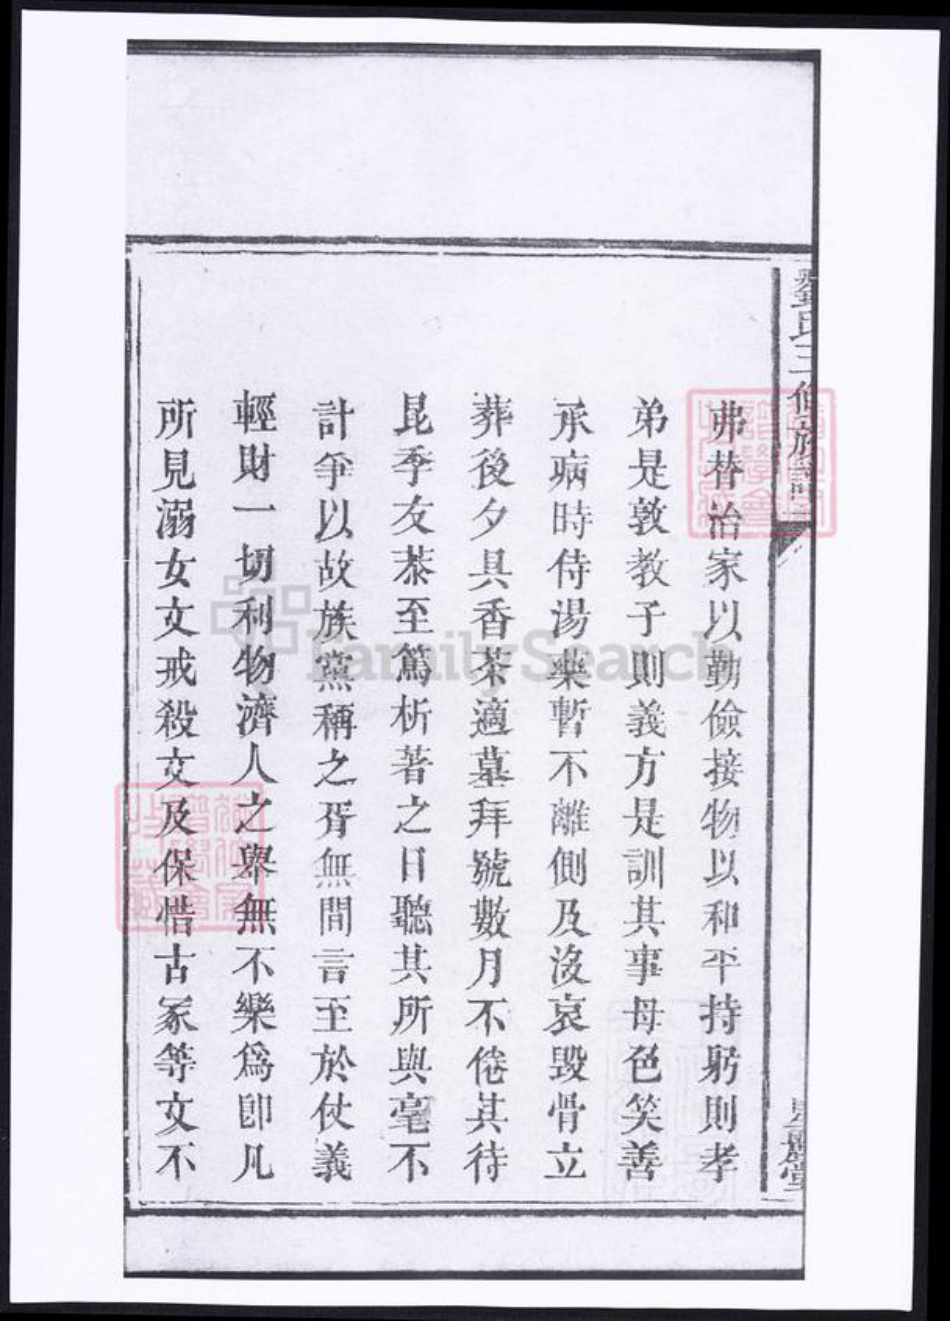 劉氏三修族譜
弗替治家以勤儉接物以和平持躬則孝
弟是敦教子則義方是訓其事母色笑善
承病時侍湯藥暫不離側及沒哀毀骨立
葬後夕具香茶適墓拜號數月不倦其待
昆季友恭至篤析著之日聽其所與毫不
計爭以故族黨稱之胥無間言至於仗義
輕財一切利物濟人之舉無不樂爲卽凡
所見溺女文戒殺文及保惜古冢等文不
FamilySearch